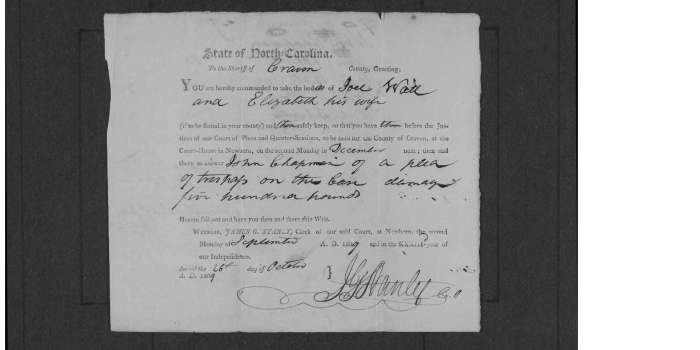 State of North-Carolina.
To the Sheriff of Craven County, Greeting:
YOU are hereby commanded to take the bodies of Joel Wall
and Elizabeth his wife
(if to be found in your county) and them safely keep, so that you have them before the Jus-
tices of our Court of Pleas and Quarter-Sessions, to be held for the County of Craven, at the
Court-House in Newbern, on the second Monday in December next; then and
there to answer John Chapman of a plea
of trespass on the Case damage
five hundred pounds
Herein fail not and have you then and there this Writ.
WITNESS, JAMES G. STANLY, Clerk of our said Court, at Newbern, the second
Monday of September A. D. 1809 and in the year of
our Independence.
Issued the 26th day of October
A. D. 1809
J G Stanly